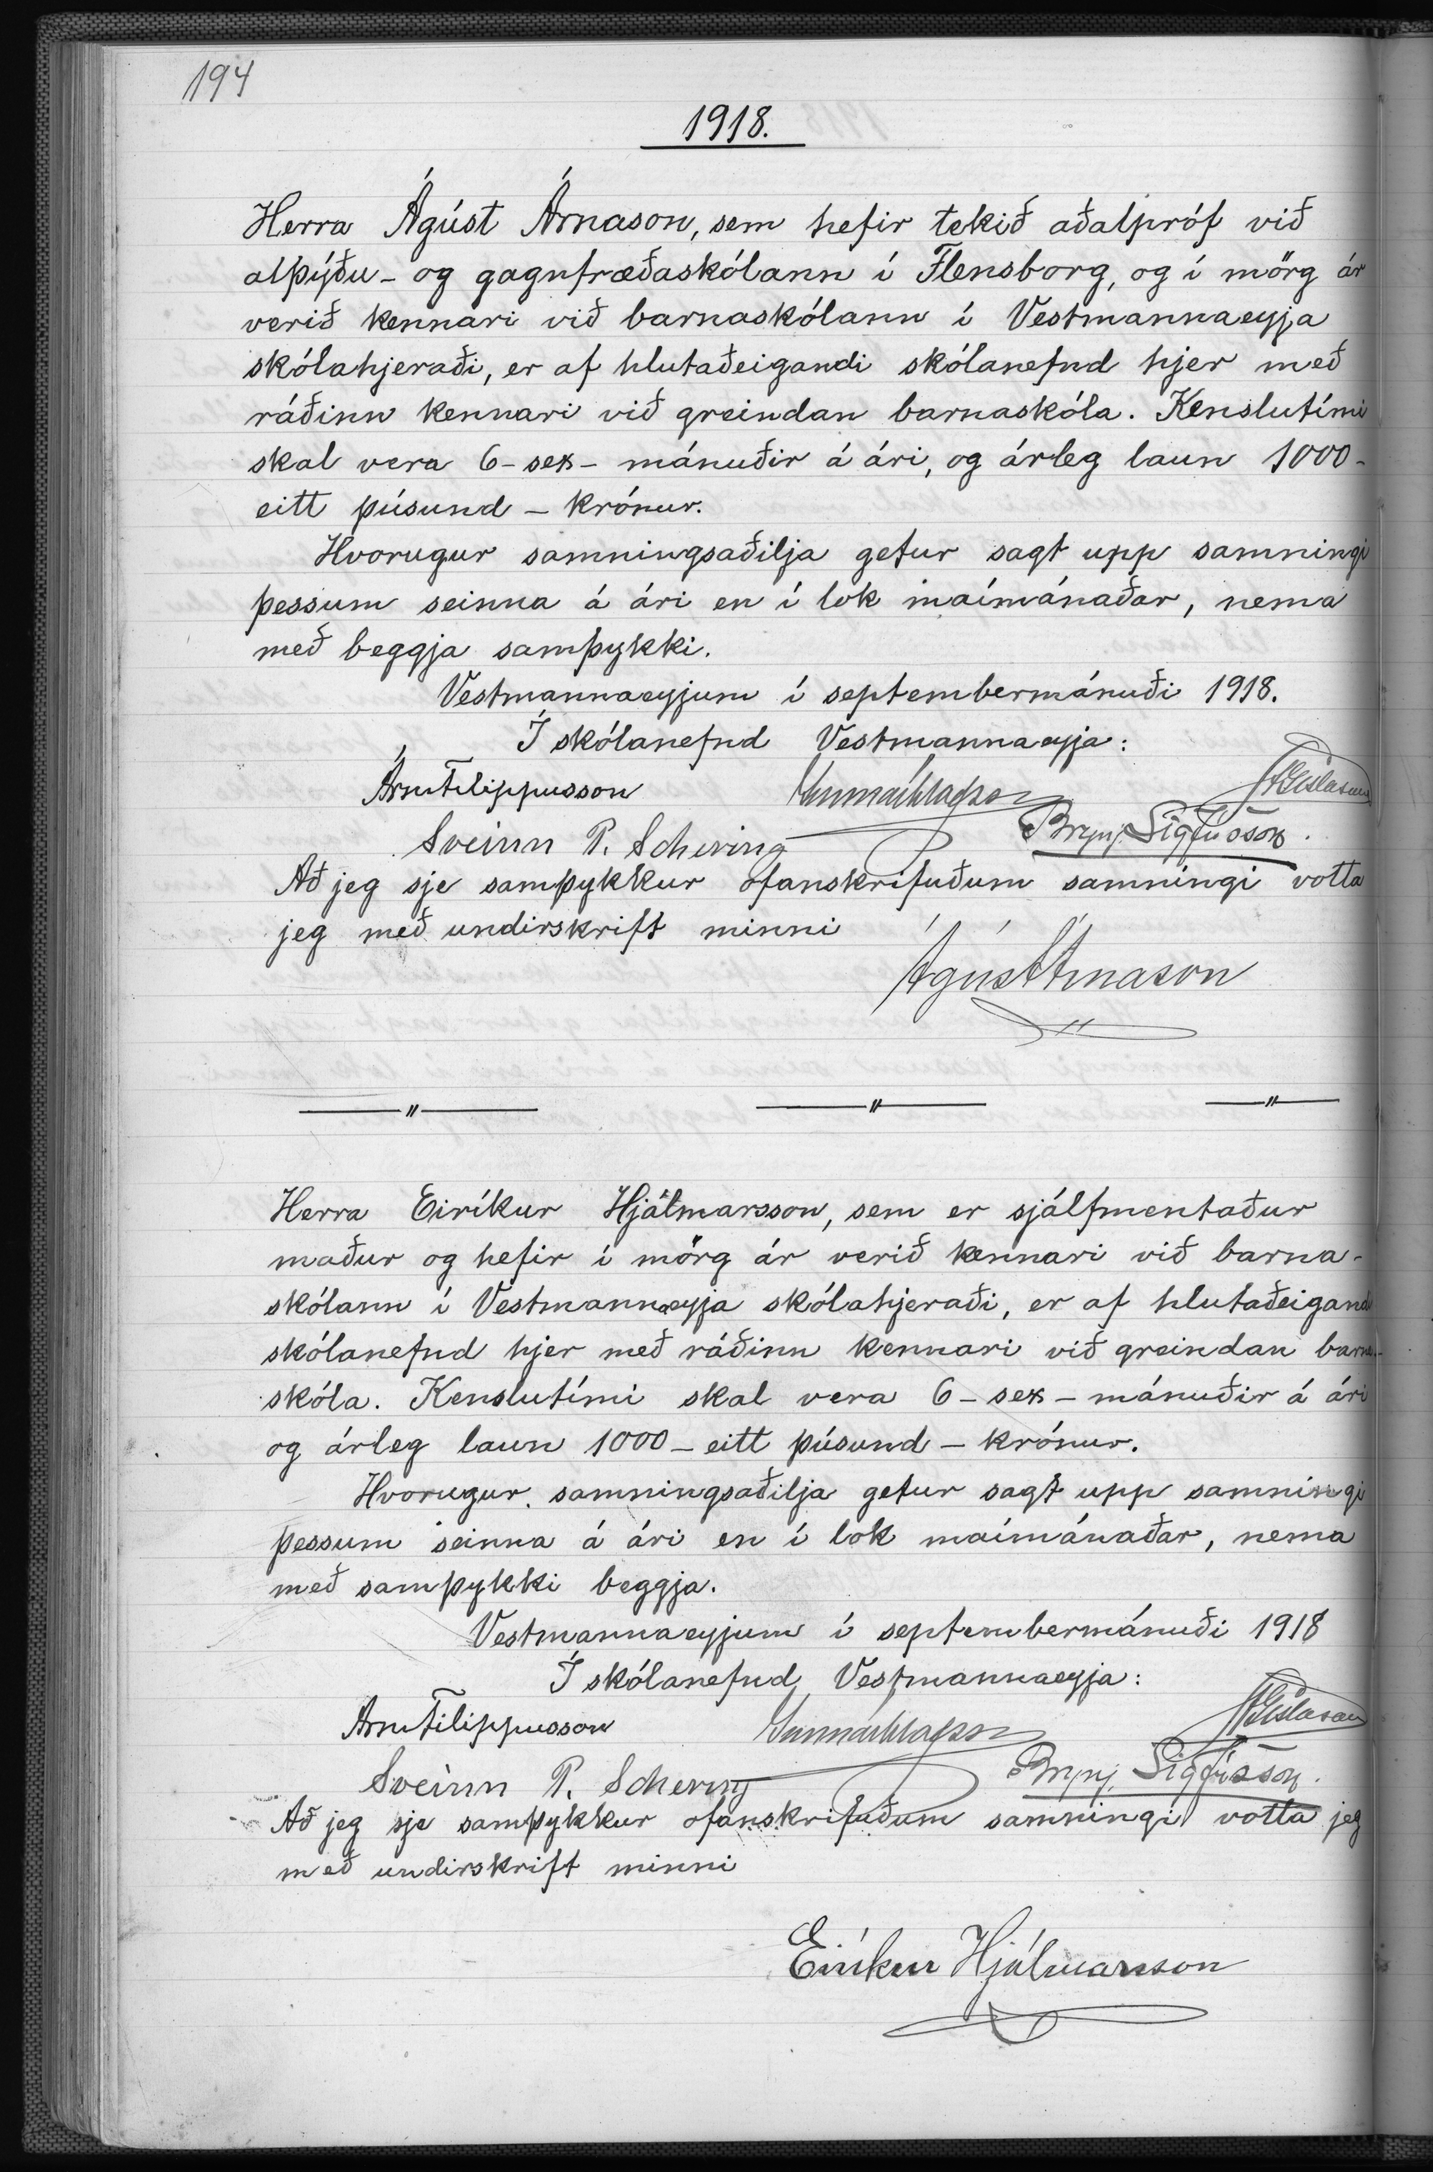 194
1918.
Herra Ágúst Árnason, sem hefir tekið aðalpróf við
alþýðu- og gagnfræðaskólann í Flensborg, og í mörg ár
verið kennari við barnaskólann í Vestmannaeyja
skólahjeraði, er af hlutaðeigandi skólanefnd hjer með
ráðinn kennari við greindan barnaskóla. Kenslutími
skal vera 6 - sex - mánuðir á ári, og árleg laun 1000 -
eitt þúsund - krónur.
Hvorugur samningsaðilja getur sagt upp samningi
þessum seinna á ári en í lok maímánaðar, nema
með beggja samþykki.
Vestmannaeyjum í septembermánuði 1918.
Í skólanefnd Vestmannaeyja:
Árni Filippusson Gunnar Ólafsson Gíslason
Sveinn P. Scheving Brynj. Sigfússon.
Að jeg sje samþykkur ofanskrifuðum samningi votta
jeg með undirskrift minni
Ágúst Árnason
Herra Eiríkur Hjálmarsson, sem er sjálfmentaður
maður og hefir í mörg ár verið kennari við barna-
skólann í Vestmannaeyja skólahjeraði, er af hlutaðeigandi
skólanefnd hjer með ráðinn kennari við greindan barna-
skóla. Kenslutími skal vera 6 - sex - mánuðir á ári
og árleg laun 1000 - eitt þúsund - krónur.
Hvorugur samningsaðilja getur sagt upp samningi
þessum seinna á ári en í lok maímánaðar, nema
með samþykki beggja.
Vestmannaeyjum í septembermánuði 1918
Í skólanefnd Vestmannaeyja:
Árni Filippusson Gunnar Ólafsson Gíslason
Sveinn P. Scheving Brynj. Sigfússon.
Að jeg sje samþykkur ofanskrifuðum samningi votta jeg
með undirskrift minni
Eiríkur Hjálmarsson